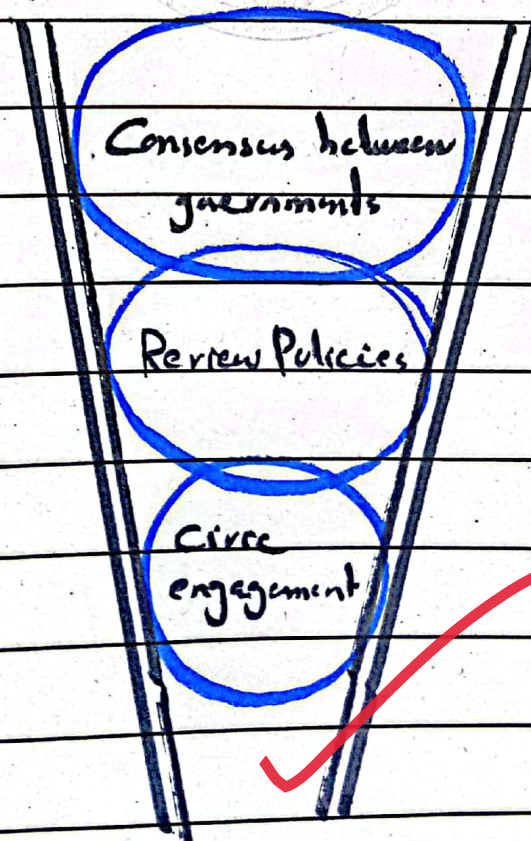 Consensus between
governments
Review Policies
Civic
engagement